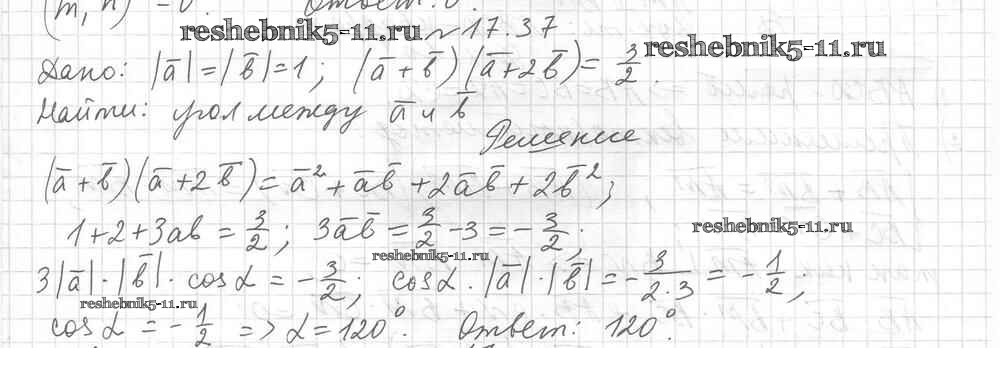 (m, n) = 0. Ответ: 0.
reshebnik5-11.ru №17.37
reshebnik5-11.ru
Дано: |a̅|=|b̅|=1; (a̅+b̅)(a̅+2b̅)= 3/2.
Найти: угол между a̅ и b̅
Решение
(a̅+b̅)(a̅+2b̅)=a̅²+a̅b̅+2a̅b̅+2b̅²;
1+2+3ab = 3/2; 3a̅b̅ = 3/2 -3 = -3/2;
reshebnik5-11.ru
reshebnik5-11.ru
3|a̅|·|b̅|·cosα = -3/2; cosα·|a̅|·|b̅| = -3/2·3 = -1/2;
reshebnik5-11.ru
cosα = -1/2 => α=120°. Ответ: 120°.